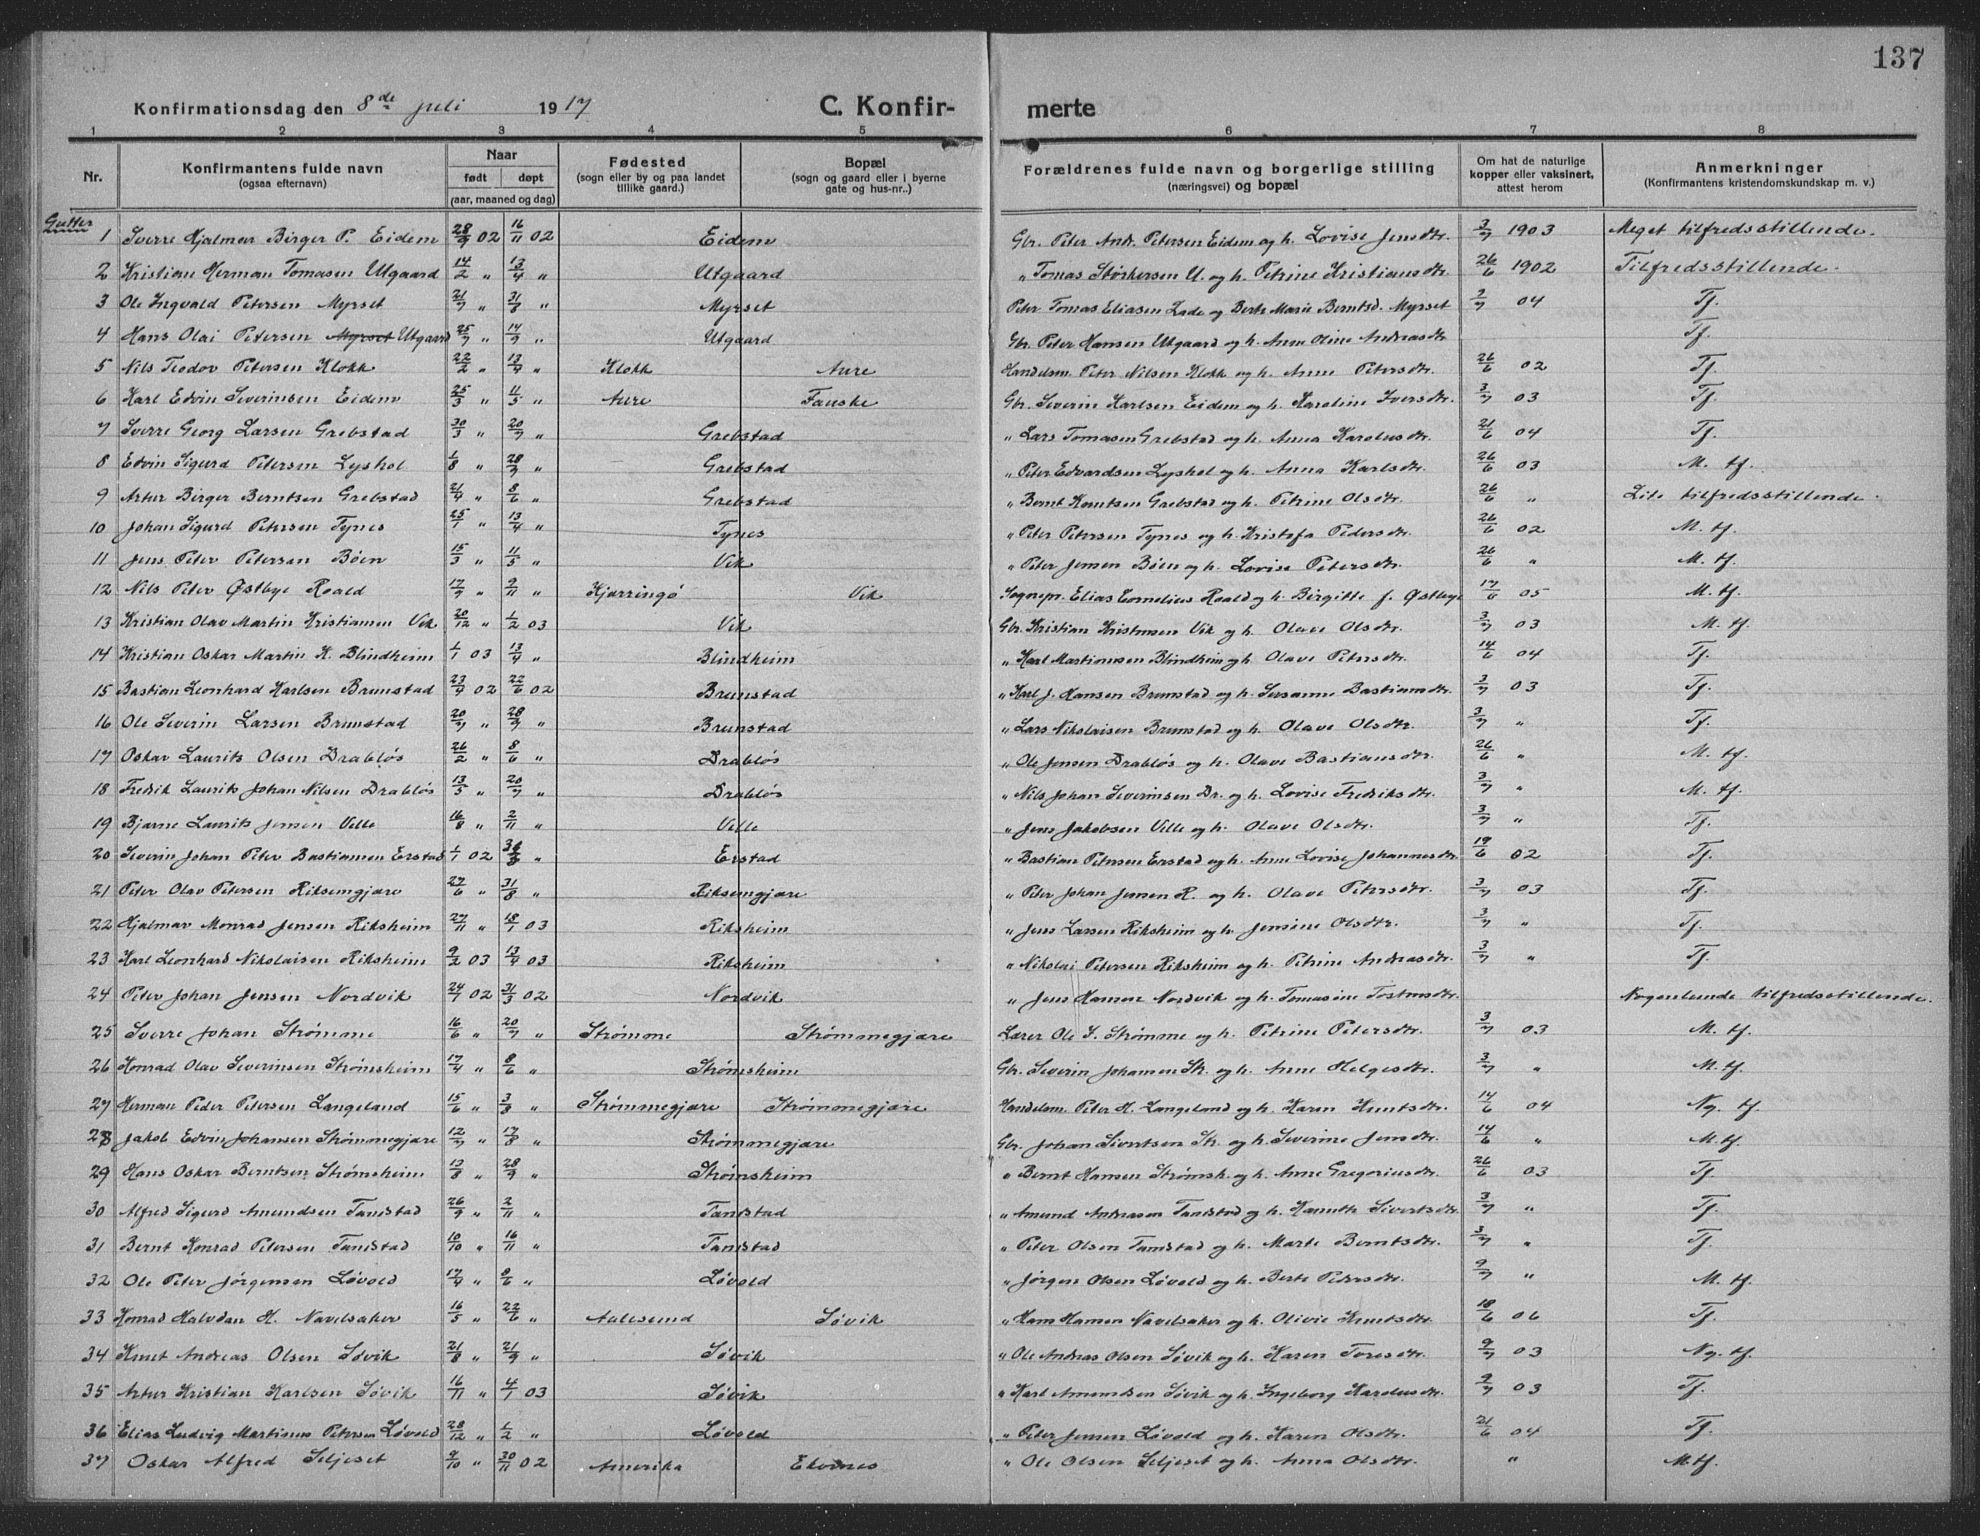 137
Konfirmationsdag den 8de juli 1917 C. Konfir- merte
1 2 3 4 5 6 7 8
Nr. Konfirmantens fulde navn (ogsaa efternavn) Naar født døpt (aar, maaned og dag) Fødested (sogn eller by og paa landet tillike gaard.) Bopæl (sogn og gaard eller i byerne gate og hus-nr..) Forældrenes fulde navn og borgerlige stilling (næringsvei) og bopæl Om hat de naturlige kopper eller vaksinert, attest herom Anmerkninger (Konfirmantens kristendomskundskap m. v.)
Gutter
1 Sverre Hjalmar Birger P. Eidem 28/9 02 16/11 02 Eidem Gbr. Peter Andr. Petersen Eidem og h. Lovise Jensdtr. 3/7 1903 Meget tilfredsstillende.
2 Kristian Herman Tomasen Utgaard 14/2 " 13/4 " Utgaard " Tomas Størkersen U. og h. Petrine Kristiansdtr. 26/6 1902 Tilfredsstillende.
3 Ole Ingvald Petersen Myrset 21/7 " 31/8 " Myrset Peter Tomas Eliasen Lade og Berte Marie Berntsd. Myrset 3/7 04 Tf.
4 Hans Olai Petersen Myrset Utgaard 25/7 " 14/9 " Utgaard Gbr. Peter Hansen Utgaard og h. Anne Oline Andreasdtr Tf.
5 Nils Teodor Petersen Klokk 22/2 " 13/4 " Klokk Aure Handelsm. Peter Nilsen Klokk og h. Anne Petersdtr. 26/6 02 Tf.
6 Karl Edvin Severinsen Eidem 25/3 " 11/5 " Aure Fauske Gbr. Severin Karlsen Eidem og h. Karoline Iversdtr. 3/7 03 Tf.
7 Sverre Georg Larsen Grebstad 30/3 " 20/7 " Grebstad " Lars Tomasen Grebstad og h. Anna Karolusdtr. 21/6 04 Tf.
8 Edvin Sigurd Petersen Lyshol 1/8 " 28/9 " Grebstad " Peter Edvardsen Lyshol og h. Anna Karlsdtr. 26/6 03 M. tf.
9 Artur Birger Berntsen Grebstad 21/4 " 8/6 " Grebstad " Bernt Knutsen Grebstad og h. Petrine Olsdtr. 26/6 " Lite tilfredsstillende.
10 Johan Sigurd Petersen Tynes 25/1 " 13/4 " Tynes " Peter Petersen Tynes og h. Kristofa Pedersdtr. 26/6 02 M. tf.
11 Jens Peter Petersen Bøen 15/3 " 11/5 " Vik " Peter Jensen Bøen og h. Lovise Petersdtr. 26/6 " M. tf.
12 Nils Peter Østbye Roald 17/9 " 9/11 " Kjærringø Vik Sognepr. Elias Cornelius Roald og h. Birgitte f. Østbye 05 M. tf.
13 Kristian Olav Martin Kristiansen Vik 20/12 " 1/2 03 Vik Gbr. Kristian Kristensen Vik og h. Olave Olsdtr. 3/7 03 M. tf.
14 Kristian Oskar Martin K. Blindheim 1/1 03 13/4 " Blindheim " Karl Martinusen Blindheim og h. Olave Petersdtr. 14/6 04 Tf.
15 Bastian Leonhard Karlsen Brunstad 23/4 02 22/6 02 Brunstad " Karl J. Hansen Brunstad og h. Susanne Bastiansdtr. 3/7 03 Tf.
16 Ole Severin Larsen Brunstad 20/7 " 28/9 " Brunstad " Lars Nikolaisen Brunstad og h. Olave Olsdtr. 3/7 " Tf.
17 Oskar Laurits Olsen Drabløs 26/2 " 8/6 " Drabløs " Ole Jensen Drabløs og h. Olave Bastiansdtr. 26/6 " M. tf.
18 Fredrik Laurits Johan Nilsen Drabløs 13/5 " 20/7 " Drabløs " Nils Johan Severinsen Dr. og h. Lovise Fredriksdtr. 3/7 " M. tf.
19 Bjarne Laurits Jensen Velle 16/8 " 2/11 " Velle " Jens Jakobsen Velle og h. Olave Olsdtr. 3/7 " Tf.
20 Severin Johan Peter Bastiansen Erstad 1/1 02 " Erstad " Bastian Petersen Erstad og h. Anne Lovise Johannesdtr. 19/6 02 Tf.
21 Peter Olav Petersen Riksemgjære 27/6 " 31/8 " Riksemgjære " Peter Johan Jensen R. og h. Olave Petersdtr. 3/7 03 Tf.
22 Hjalmar Monrad Jensen Riksheim 27/11 " 18/1 03 Riksheim " Jens Larsen Riksheim og h. Jensine Olsdtr. 3/7 " Tf.
23 Karl Leonhard Nikolaisen Riksheim 9/2 03 13/4 03 Riksheim " Nikolai Petersen Riksheim og h. Petrine Andreasdtr. 3/7 " Tf.
24 Peter Johan Jensen Nordvik 24/1 02 31/3 02 Nordvik " Jens Hansen Nordvik og h. Tomasine Tostensdtr. Nogenlunde tilfredsstillende.
25 Sverre Johan Strømme 16/6 " 20/7 " Strømme Strømmegjære Lærer Ole J. Strømme og h. Petrine Petersdtr. 3/7 03 M. tf.
26 Konrad Olav Severinsen Strømsheim 17/4 " 8/6 " Strømsheim Gbr. Severin Johansen Str. og h. Anne Helgesdtr. 3/7 " M. tf.
27 Herman Peder Petersen Langeland 15/6 " 3/8 " Strømmegjære Strømmegjære Handelsm. Peter H. Langeland og h. Karen Knutsdtr. 14/6 04 Ng. tf.
28 Jakob Edvin Johansen Strømmegjære 12/7 " 17/8 " Strømmegjære Gbr. Johan Sivertsen Str. og h. Severine Jensdtr. 14/6 " M. tf.
29 Hans Oskar Berntsen Strømsheim 13/8 " 28/9 " Strømsheim " Bernt Hansen Strømsh. og h. Anne Gregoriusdtr. 26/6 03 Tf.
30 Alfred Sigurd Amundsen Tandstad 26/9 " 2/11 " Tandstad " Amund Andreasen Tandstad og h. Hanna Sivertsdtr. 3/7 " Tf.
31 Bernt Konrad Petersen Tandstad 10/10 " 16/11 " Tandstad " Peter Olsen Tandstad og h. Marte Berntsdtr. 3/7 " Tf.
32 Ole Peter Jørgensen Løvold 17/4 " 8/6 " Løvold " Jørgen Olsen Løvold og h. Berte Pedersdtr. 9/7 " M. tf.
33 Konrad Halvdan H. Navelsaker 16/5 " 22/6 " Aalesund Søvik " Hans Hansen Navelsaker og h. Olivie Knutsdtr. 18/6 06 Tf.
34 Knut Andreas Olsen Søvik 21/8 " 21/9 " Søvik " Ole Andreas Olsen Søvik og h. Karen Toresdtr. 9/7 03 Ng. tf.
35 Artur Kristian Karlsen Søvik 16/11 " 4/1 03 Søvik " Karl Amundsen Søvik og h. Ingeborg Karolusdtr. 9/7 03 Tf.
36 Elias Ludvig Martinus Petersen Løvold 28/12 " 1/2 " Løvold " Peter Jensen Løvold og h. Karen Olsdtr. 21/6 04 Tf.
37 Oskar Alfred Seljeset 9/10 " 30/11 02 Amerika Ekornes " Ole Olsen Seljeset og h. Anna Olsdtr. " M. tf.